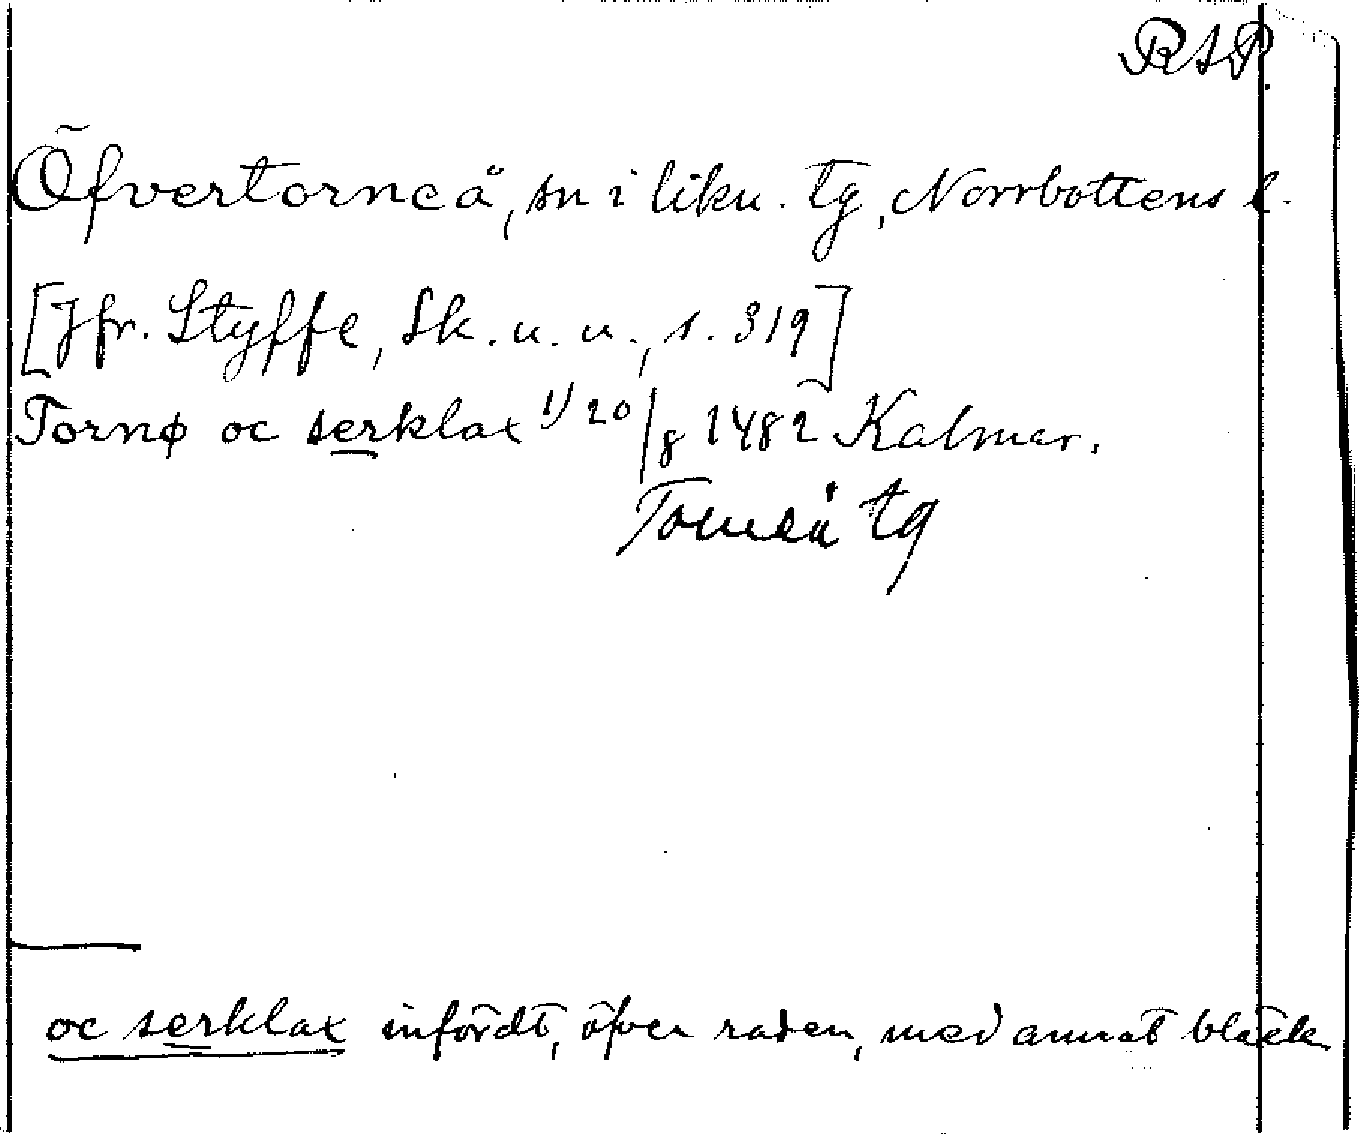 RAP.
Öfvertorneå, sn i likn. tg, Norrbottens l.
[Jfr. Styffe, Sk. u. u., s. 319]
Tornø oc serklax 1) 20/8 1482 Kalmar.
Torneå tg
oc serklax infördt, öfver raden, med annat bläck